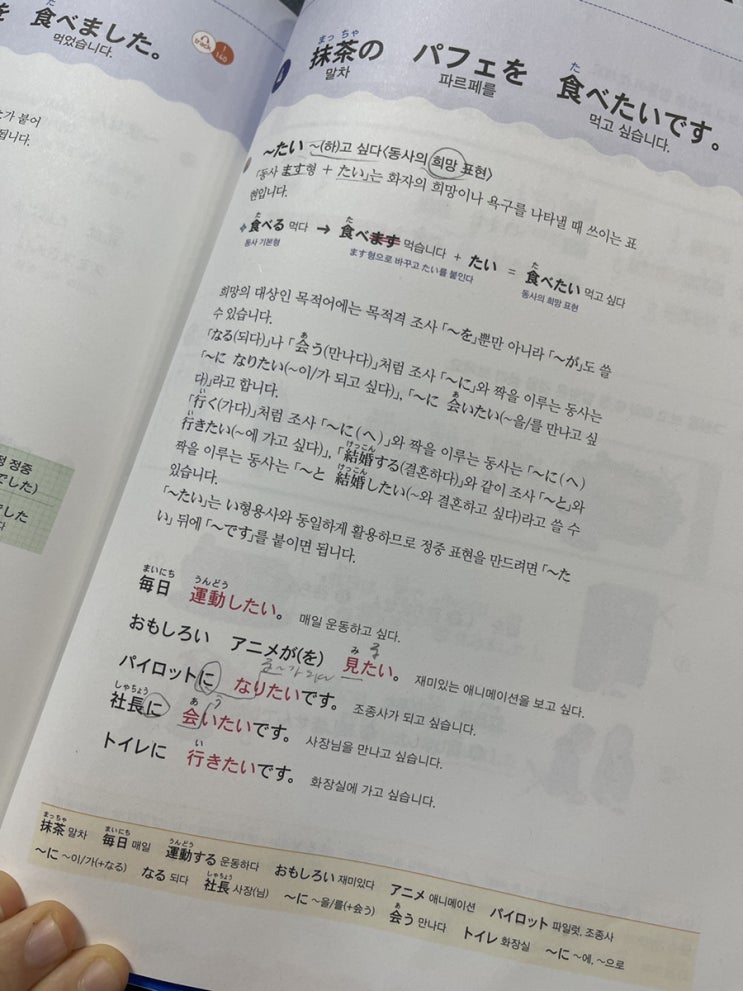 を 食べました。
먹었습니다.
track 1 140
스가 붙어
됩니다.
정 정중
でした)
でした
다
まっ ちゃ た
抹茶の パフェを 食べたいです。
말차 파르페를 먹고 싶습니다.
~たい ~(하)고 싶다〈동사의 희망 표현〉
「동사 ます형 + たい」는 화자의 희망이나 욕구를 나타낼 때 쓰이는 표
현입니다.
た た た
食べる 먹다 → 食べます 먹습니다 + たい = 食べたい 먹고 싶다
동사 기본형 ます형으로 바꾸고 たい를 붙인다 동사의 희망 표현
희망의 대상인 목적어에는 목적격 조사 「~を」뿐만 아니라 「~が」도 쓸
수 있습니다.
あ
「なる(되다)」나 「会う(만나다)」처럼 조사 「~に」와 짝을 이루는 동사는
あ
「~に なりたい(~이/가 되고 싶다)」, 「~に 会いたい(~을/를 만나고 싶
다)」라고 합니다.
い
「行く(가다)」처럼 조사 「~に(へ)」와 짝을 이루는 동사는 「~に(へ)
い けっこん
行きたい(~에 가고 싶다)」, 「結婚する(결혼하다)」와 같이 조사 「~と」와
けっこん
짝을 이루는 동사는 「~と 結婚したい(~와 결혼하고 싶다)라고 쓸 수
있습니다.
「~たい」는 い형용사와 동일하게 활용하므로 정중 표현을 만드려면 「~た
い」 뒤에 「~です」를 붙이면 됩니다.
まいにち うんどう
毎日 運動したい。 매일 운동하고 싶다.
み る
おもしろい アニメが(を) 見たい。 재미있는 애니메이션을 보고 싶다.
パイロットに なりたいです。 조종사가 되고 싶습니다.
しゃちょう あ う
社長に 会いたいです。 사장님을 만나고 싶습니다.
い
トイレに 行きたいです。 화장실에 가고 싶습니다.
まっちゃ まいにち うんどう
抹茶 말차 毎日 매일 運動する 운동하다 おもしろい 재미있다 アニメ 애니메이션 パイロット 파일럿, 조종사
しゃちょう あ
~に ~이/가(+なる) なる 되다 社長 사장(님) ~に ~을/를(+会う) 会う 만나다 トイレ 화장실 ~に ~에, ~으로